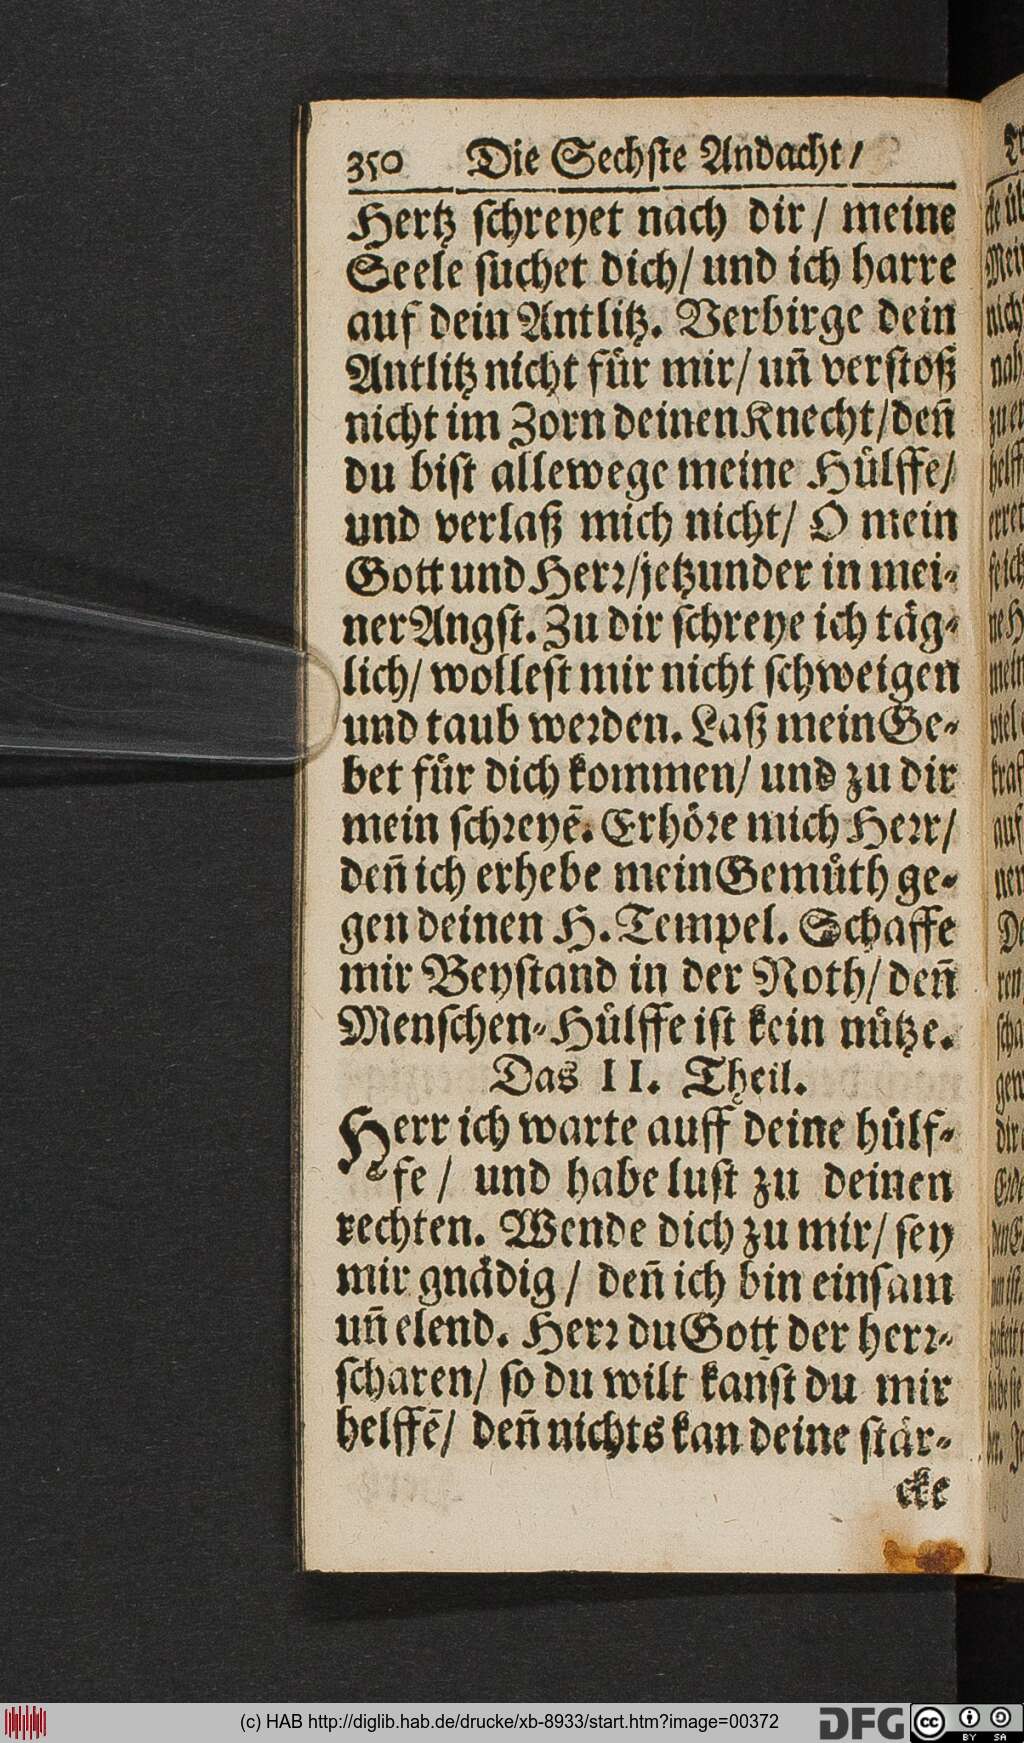 350 Die Sechste Andacht/
Hertz schreyet nach dir/ meine
Seele suchet dich/ und ich harre
auf dein Antlitz. Verbirge dein
Antlitz nicht für mir/ un̄ verstoß
nicht im Zorn deinen Knecht/ den̄
du bist allewege meine Hülffe/
und verlaß mich nicht/ O mein
Gott und Herr/ jetzunder in mei-
ner Angst. Zu dir schreye ich täg-
lich/ wollest mir nicht schweigen
und taub werden. Laß mein Ge-
bet für dich kommen/ und zu dir
mein schreyē. Erhöre mich Herr/
den̄ ich erhebe mein Gemüth ge-
gen deinen H. Tempel. Schaffe
mir Beystand in der Noth/ den̄
Menschen-Hülffe ist kein nütze.
Das II. Theil.
Herr ich warte auff deine hülf-
fe/ und habe lust zu deinen
rechten. Wende dich zu mir/ sey
mir gnädig/ den̄ ich bin einsam
un̄ elend. Herr du Gott der herr-
scharen/ so du wilt kan̄st du mir
helffē/ den̄ nichts kan deine stär-
cke
(c) HAB http://diglib.hab.de/drucke/xb-8933/start.htm?image=00372
DFG
cc BY SA